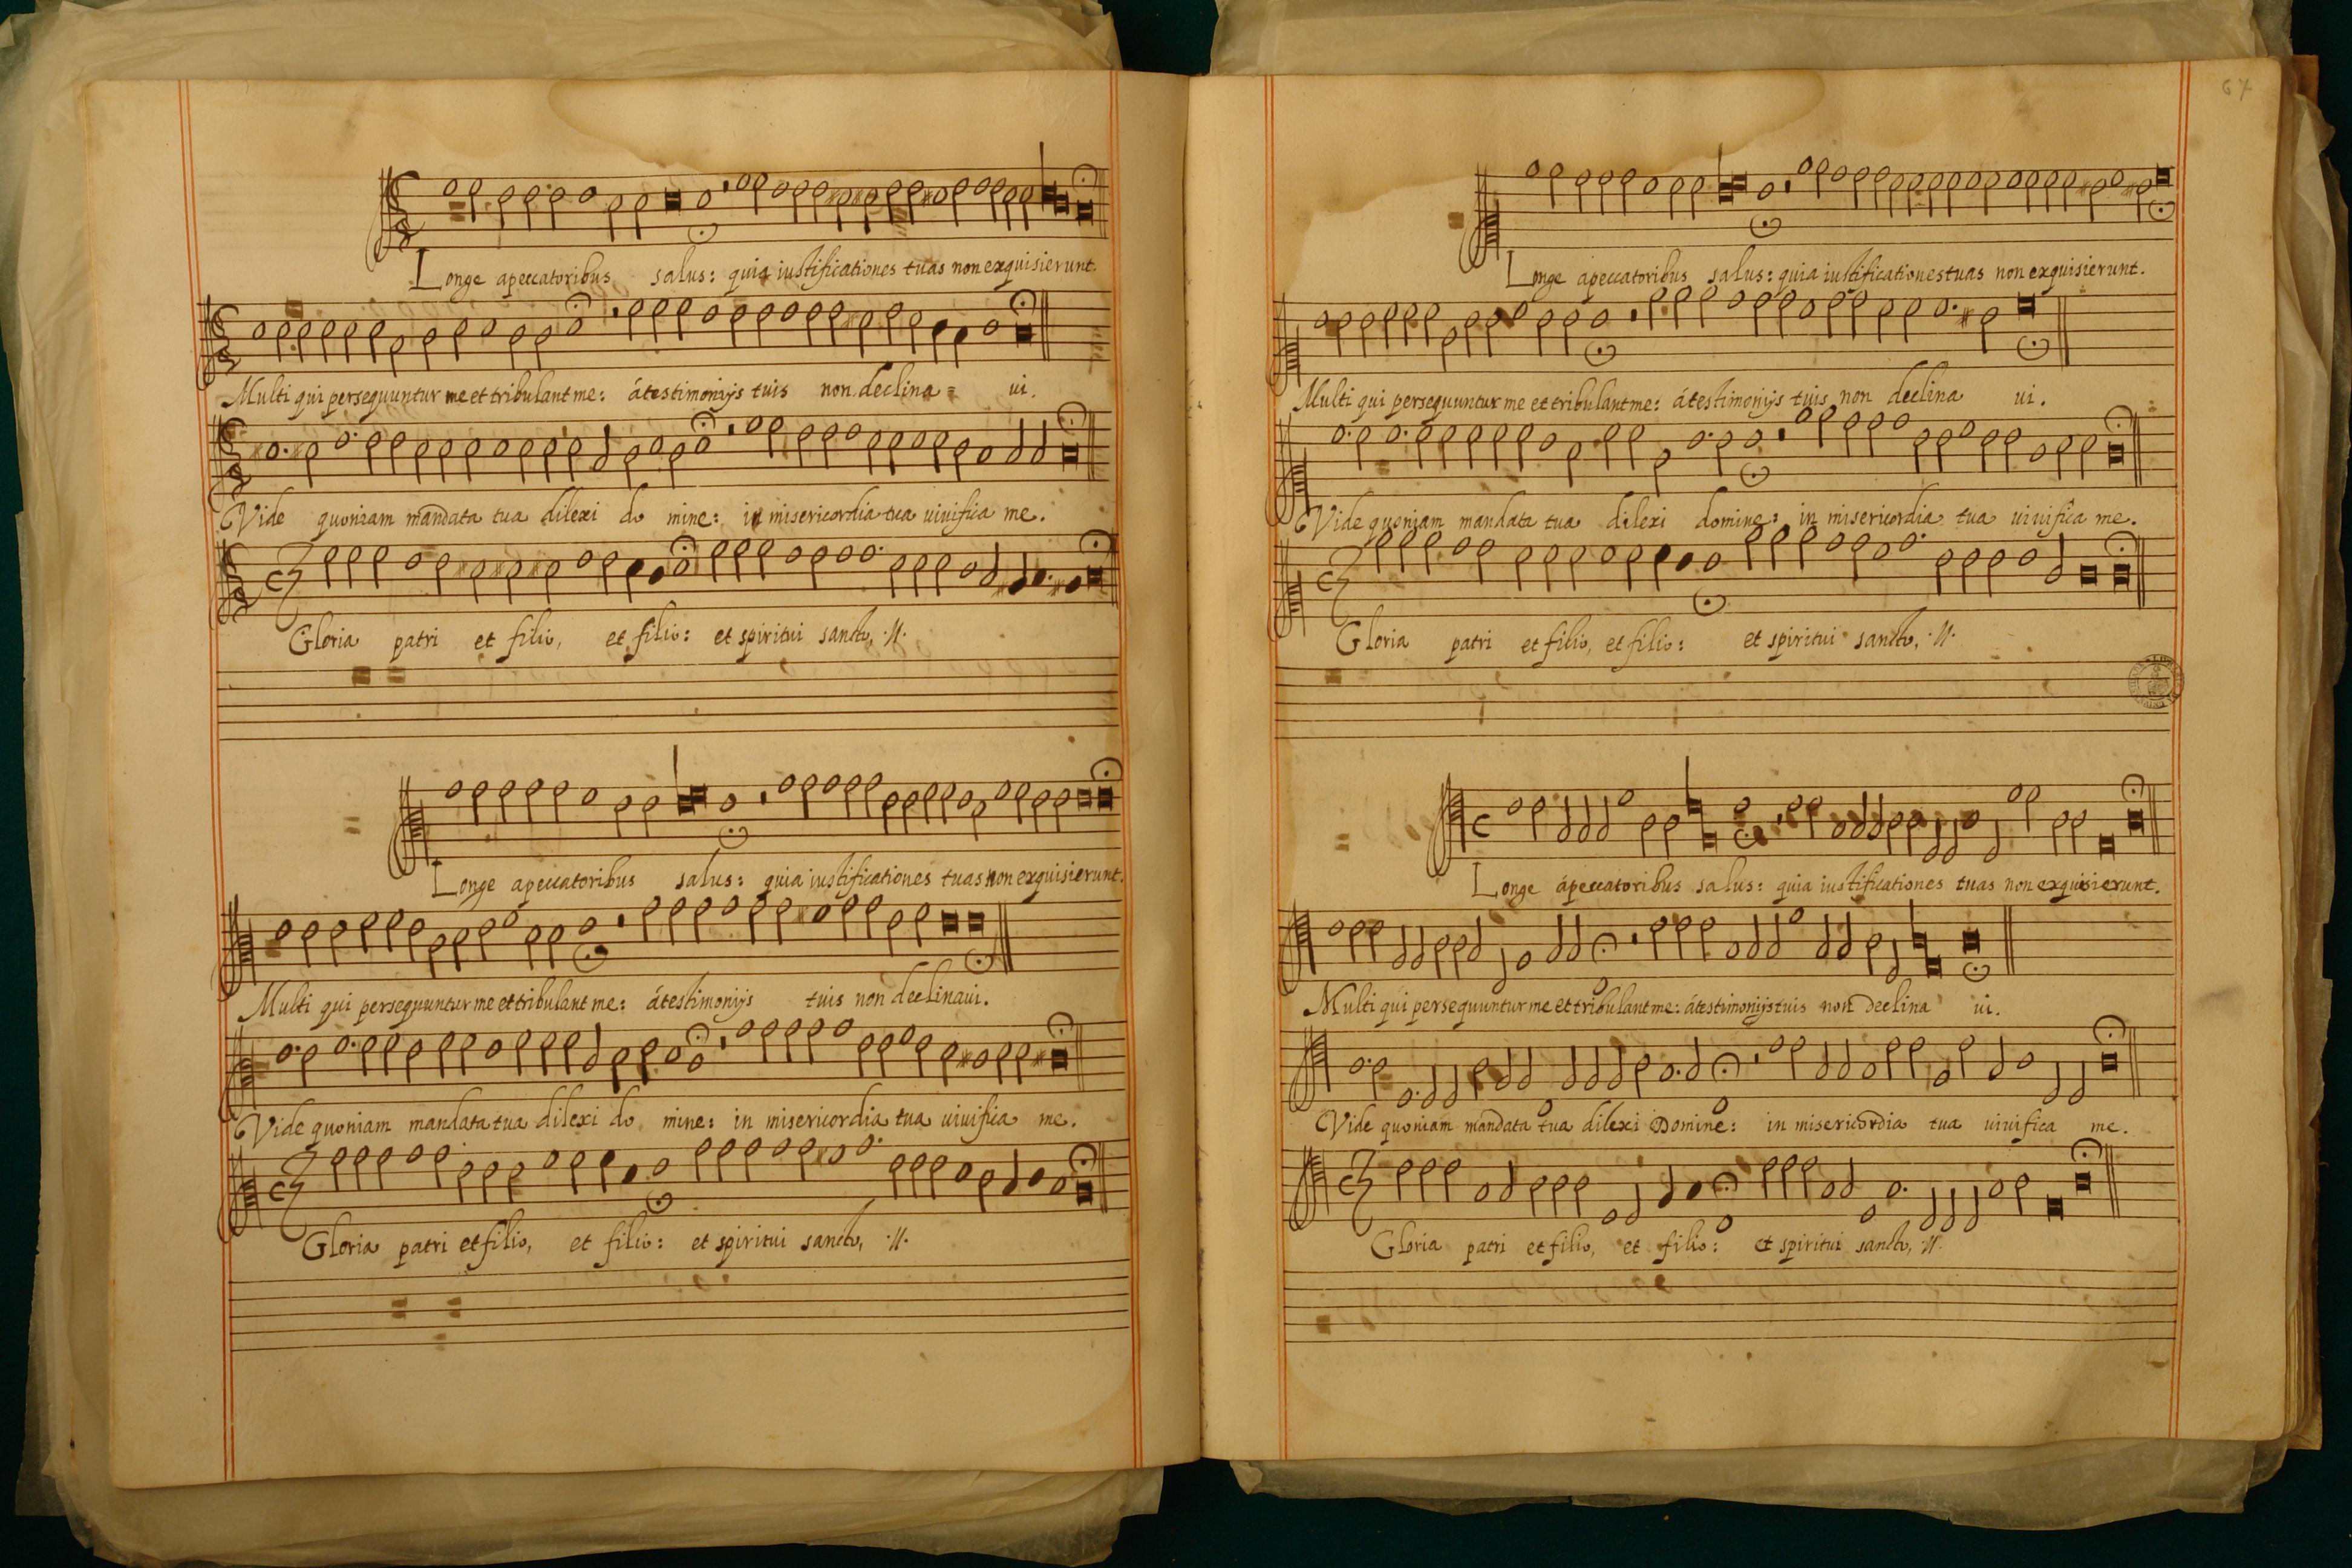 Longe apeccatoribus salus: quia iustificationes tuas non exquisierunt.
Multi qui persequuntur me et tribulant me: átestimonijs tuis non declina = ui.
Vide quoniam mandata tua dilexi do mine: in misericordia tua uiuifica me.
Gloria patri et filio, et filio: et spiritui sancto, ·//·
Longe apeccatoribus salus: quia iustificationes tuas non exquisierunt.
Multi qui persequuntur me et tribulant me: átestimonijs tuis non declinaui.
Vide quoniam mandata tua dilexi do mine: in misericordia tua uiuifica me.
Gloria patri et filio, et filio: et spiritui sancto, ·//·
67
Longe apeccatoribus salus: quia iustificationes tuas non exquisierunt.
Multi qui persequuntur me et tribulant me: átestimonijs tuis non declina ui.
Vide quoniam mandata tua dilexi domine: in misericordia tua uiuifica me.
Gloria patri et filio, et filio: et spiritui sancto, ·//·
Longe ápeccatoribus salus: quia iustificationes tuas non exquisierunt.
Multi qui persequuntur me et tribulant me: átestimonijs tuis non declina ui.
Vide quoniam mandata tua dilexi Domine: in misericordia tua uiuifica me.
Gloria patri et filio, et filio: et spiritui sancto, ·//·